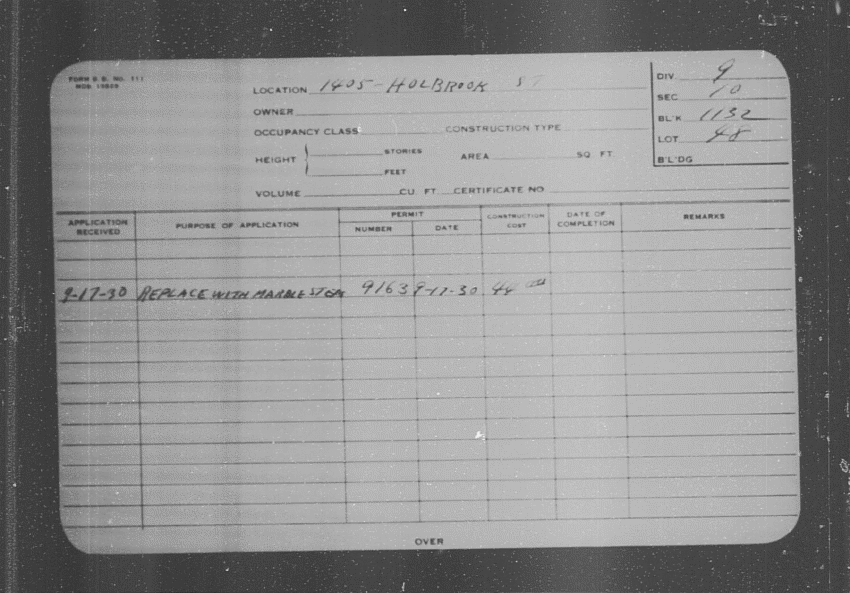 FORM B. B. NO. 111
LOCATION 1405 - HOLBROOK ST
DIV 9
SEC 10
OWNER
BL'K 1132
OCCUPANCY CLASS CONSTRUCTION TYPE
LOT 48
HEIGHT STORIES AREA SQ. FT.
FEET
B'L'DG
VOLUME CU. FT. CERTIFICATE NO.
APPLICATION RECEIVED PURPOSE OF APPLICATION PERMIT NUMBER DATE CONSTRUCTION COST DATE OF COMPLETION REMARKS
9-17-30 REPLACE WITH MARBLE STEPS 9163 9-17-30 44
OVER